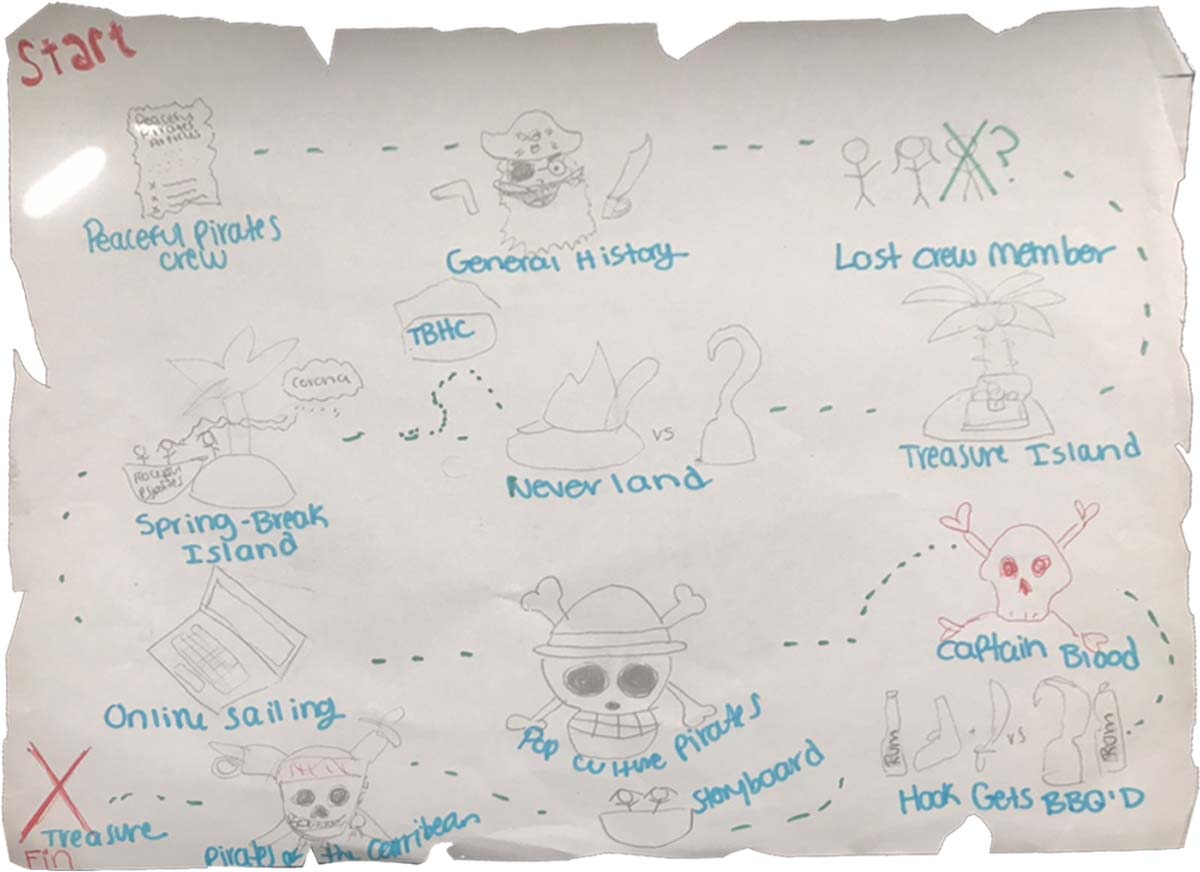 Start
Peaceful
Pirates
Articles
x
x
x
Peaceful Pirates
crew
General History
?
Lost crew member
TBHC
corona
Peaceful
Pirates
Spring-Break
Island
vs
Neverland
Treasure Island
Online Sailing
Pop culture pirates
Captain Blood
Rum
vs
Rum
Hook Gets BBQ'D
Storyboard
Pirates of the Carribean
Treasure
Fin